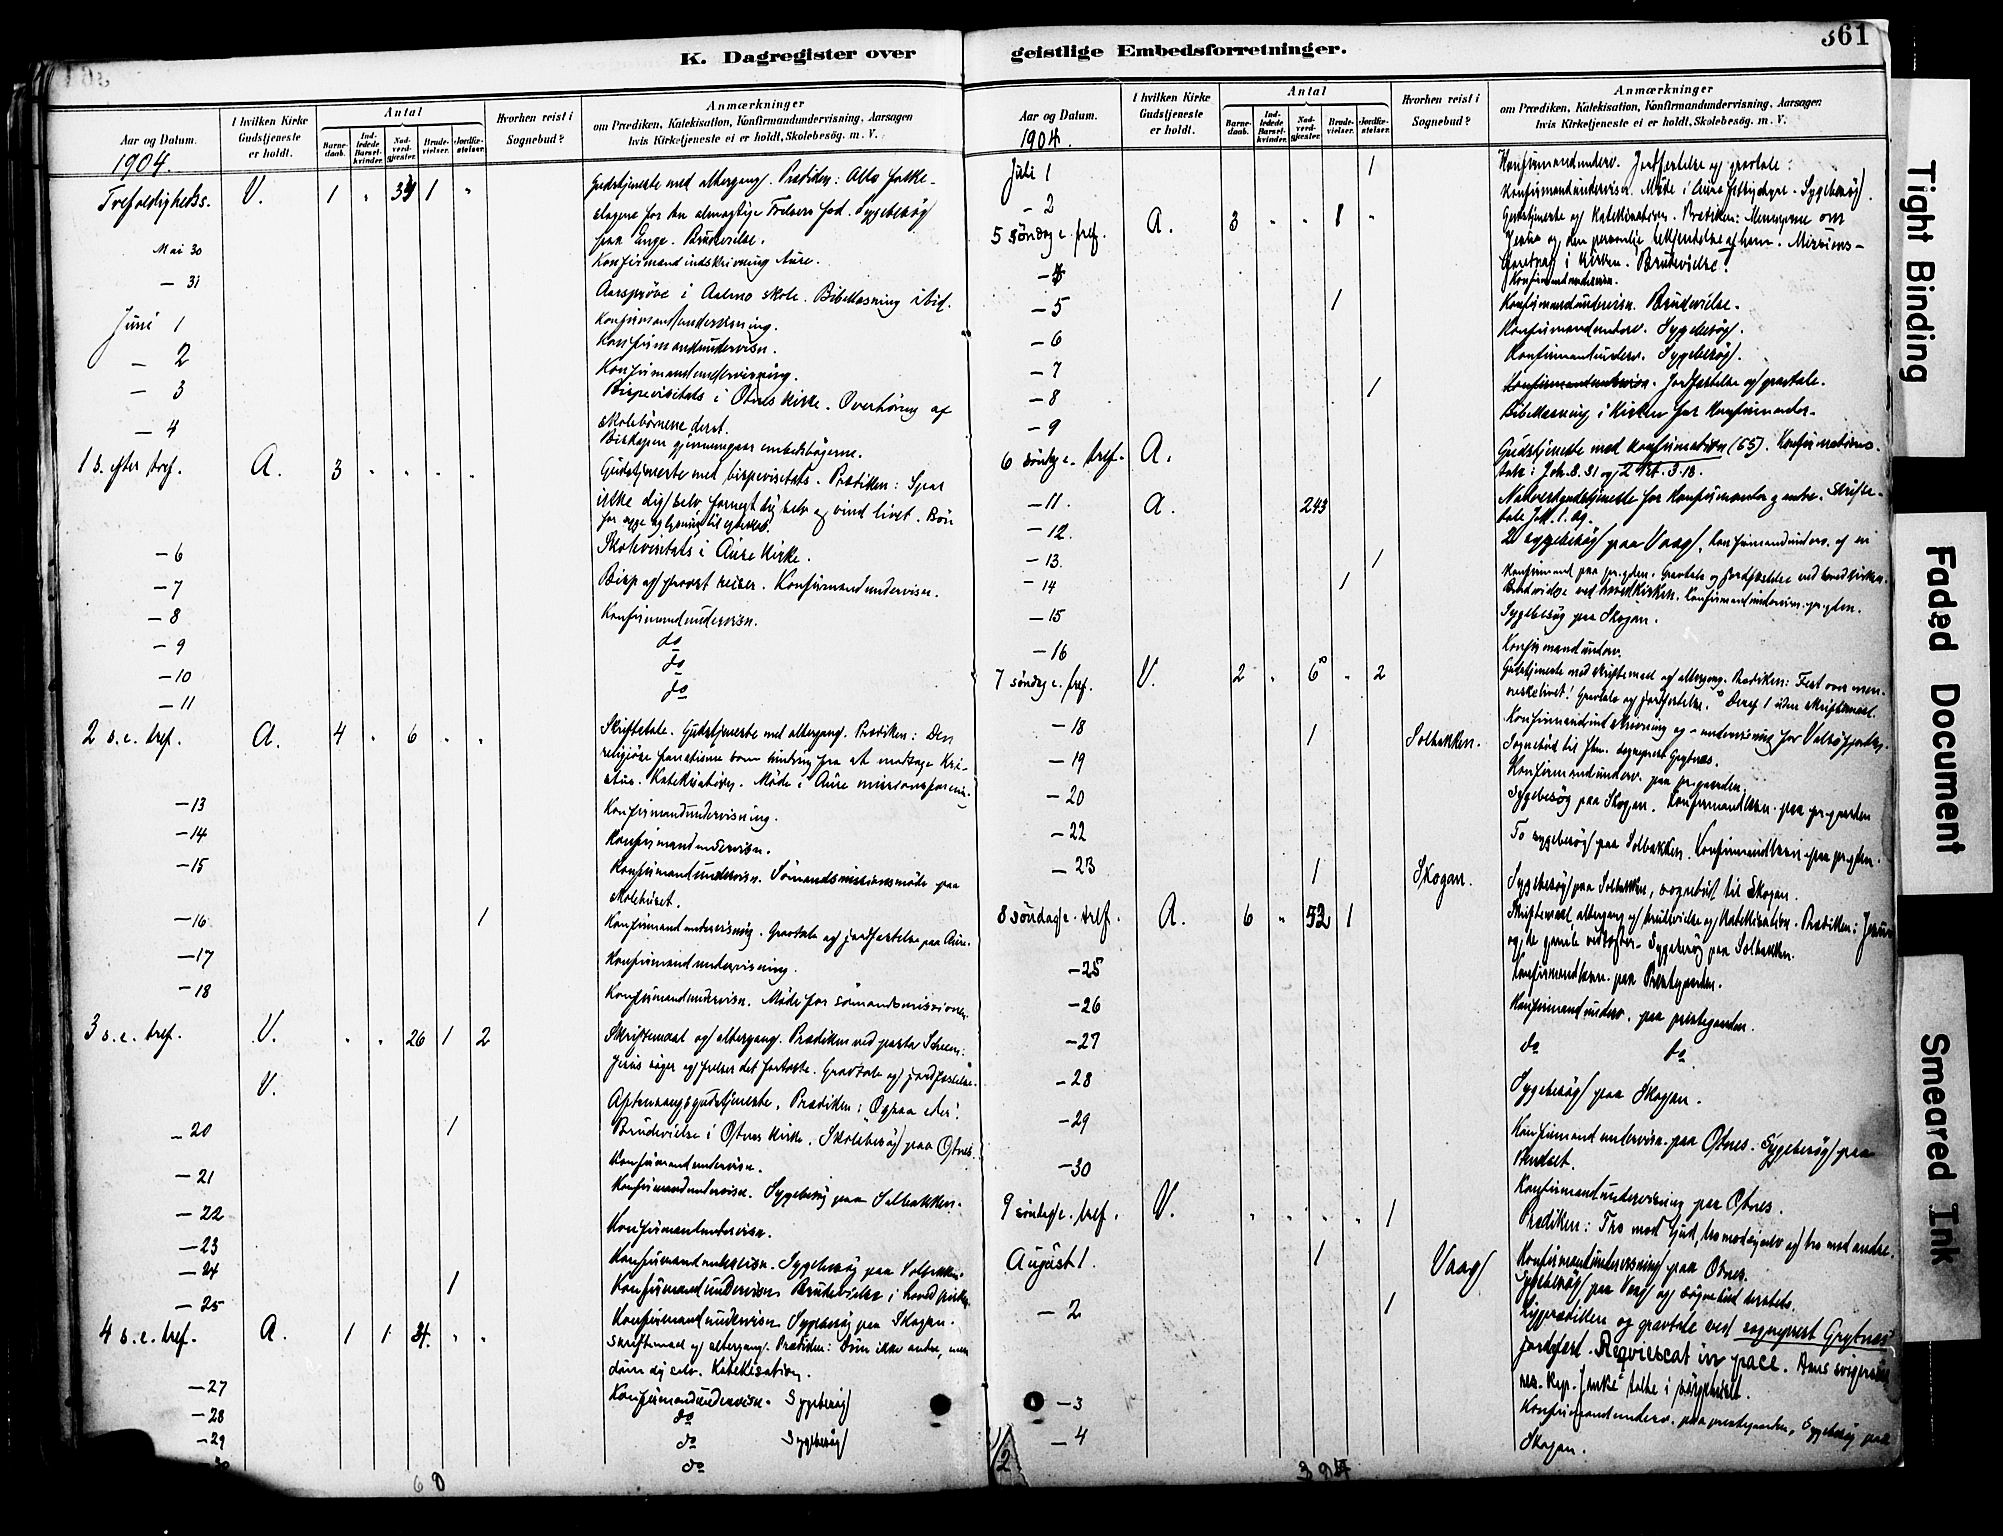 K. Dagregister over
Aar og Datum.
I hvilken Kirke Gudstjeneste er holdt.
Antal
Barnedaab.
Indledede Barselkvinder.
Nadverdgjester.
Brudevielser.
Jordfæstelser.
Hvorhen reist i Sognebud?
Anmærkninger
om Prædiken, Katekisation, Konfirmandundervisning, Aarsagen
hvis Kirketjeneste ei er holdt, Skolebesøg. m. V.
1904.
Trefoldighetss. V. 1 " 1 " Gudstjeneste med altergang. Prædiken: Alle folke-
slagene for den almægtige Frelsers fod. Sygebesøg
paa Enge. Brudevielse.
Mai 30 Konfirmandindskrivning Aure.
- 31 Aarsprøve i Aalmo skole. Bibellæsning ibid.
Juni 1 Konfirmandundervisning.
- 2 Konfirmandundervisn.
- 3 Konfirmandundervisning.
- 4 Bispevisitats i Otnes kirke. Overhøring af
skolebørnene derst.
Biskopen gjennemgaar embedsbøgerne.
1 s. efter tref. A. 3 " " " " Gudstjeneste med bispevisitats. Prædiken: Spar
ikke dig selv, fornegt dig selv og vind livet. Bøn
- 6 Skolevisitats i Aure kirke.
- 7 Bisp og provst reiser. Konfirmandundervisn.
- 8 Konfirmandundervisn.
- 9 do
- 10 do
- 11 do
2 s. e. tref. A. 4 " 6 " " Skriftetale. Gudstjeneste med altergang. Prædiken: Den
religiøse fanatisme som hindring fra at modtage Kri-
stus. Katekisation. Møde i Aure missionsforening.
- 13 Konfirmandundervisning.
- 14 Konfirmandundervisn.
- 15 Konfirmandundervisn. Sømandsmissionsmøde paa
skolehuset.
- 16 1 Konfirmandundervisning. Gravtale og jordfæstelse paa Aure.
- 17 Konfirmandundervisning.
- 18 Konfirmandundervisn. Møde for sømandsmissionen.
3 s. e. tref. V. " " 26 1 2 Skriftemaal og altergang. Prædiken ved pastor
Jesus søger og frelser det fortabte. Gravtale og jordfæstelse.
V. Aftensangsgudstjeneste. Prædiken:
- 20 1 Brudevielse i Otnes kirke. Skolebesøg paa Otnes.
Konfirmandundervisn.
- 21 Konfirmandundervisn. Sygebesøg paa Solbakken.
- 22 Konfirmandundervisn.
- 23 Konfirmandundervisn. Sygebesøg paa Solbakken.
- 24 1 Konfirmandundervisn. Brudevielse i hovedkirken.
- 25 Konfirmandundervisn. Sygebesøg paa Skogan.
4 s. e. tref. A. 1 1 " " Skriftemaal og altergang. Prædiken: Døm ikke andre, men
døm dig selv. Katekisation.
- 27 Konfirmandundervisn. Sygebesøg
- 28 do
- 29 do Sygebesøg
- 30 do
60
geistlige Embedsforretninger.
361
Aar og Datum.
I hvilken Kirke Gudstjeneste er holdt.
Antal
Barnedaab.
Indledede Barselkvinder.
Nadverdgjester.
Brudevielser.
Jordfæstelser.
Hvorhen reist i Sognebud?
Anmærkninger
om Prædiken, Katekisation, Konfirmandundervisning, Aarsagen
hvis Kirketjeneste ei er holdt, Skolebesøg. m. V.
1904.
Juli 1 1 Konfirmandunderv. Jordfæstelse og gravtale.
- 2 Konfirmandundervisn. Møde i Aure fattigstyre. Sygebesøg.
5 søndag e. tref. A. 3 " " 1 " Gudstjeneste og katekisation. Prædiken: Meningerne om
Jesus og den personlige bekjendelse af ham. Missions-
foredrag i kirken. Brudevielse.
Konfirmandundervisn.
- 5 1 Konfirmandundervisn. Brudevielse.
- 6 Konfirmandunderv. Sygebesøg.
- 7 Konfirmandunderv. Sygebesøg.
- 8 1 Konfirmandundervisn. Jordfæstelse og gravtale.
- 9 Bibellæsning i kirken for konfirmander.
6 søndag e. tref. A. Gudstjeneste med konfirmation (55). Konfirmations-
tale: Joh. 8. 31 og 2 Pet. 3. 18.
- 11 A. 243 Nadverdgudstjeneste for konfirmander og andre. Skrifte-
tale
- 12. 2 sygebesøg paa Vaag. Konfirmandunderv. af en
- 13. 1 konfirmand paa pr.gden. Gravtale og jordfæstelse ved hovedkirken.
- 14 1 Brudevielse ved hovedkirken. Konfirmandundervisn. pr.gden.
- 15 Sygebesøg paa Skogan.
- 16 Konfirmandunderv.
7 søndag e. tref. V. 2 " 6 " 2 Gudstjeneste med skriftemaal og altergang. Prædiken: Fest over men-
neskelivet! Gravtale og jordfæstelse. Deraf 1 uden skriftemaal.
- 18 Konfirmandindskrivning og -undervisning for Valsøfjorden.
1 Solbakken. Sognebud til fhv. sogneprest Grytnæs.
- 19 Konfirmandunderv. paa pr.gaarden.
- 20 Sygebesøg paa Skogan. Konfirmandundv. paa pr.gaarden
- 22 To sygebesøg paa Solbakken. Konfirmandundv. paa pr.gden.
- 23 1 Skogan. Sygebesøg paa Solbakken, sognebud til Skogan.
8 søndag e. tref. A. 6 " 52 1 Skriftemaal, altergang og brudevielse og katekisation. Prædiken: Jesus
og de gamle vedtægter. Sygebesøg paa Solbakken.
- 25 Konfirmandunv. paa Prestegaarden.
- 26 Konfirmandunderv. paa prestegaarden.
- 27 do do
- 28 Sygebesøg paa Skogan.
- 29 Konfirmandundervisn. paa Otnes. Sygebesøg paa
- 30 Konfirmandundervisning paa Otnes.
9 søndag e. tref. V. " " " " 1 Prædiken: Tro mod Gud, tro mod sig selv og tro mod andre.
August 1. 1 Vaag Konfirmandundervisning paa Otnes.
Sygebesøg paa Vaag og sognebud sammesteds.
- 2 1 Ligprædiken og gravtale ved sogneprest Grytnæs
jordfæst. Requiescat in pace. Hans svigersøn
res. kap. talte i sørgehuset.
- 3 Konfirmandunderv. paa prestegaarden. Sygebesøg paa
- 4 Skogan.
2
394
Tight Binding
Faded Document
Smeared Ink